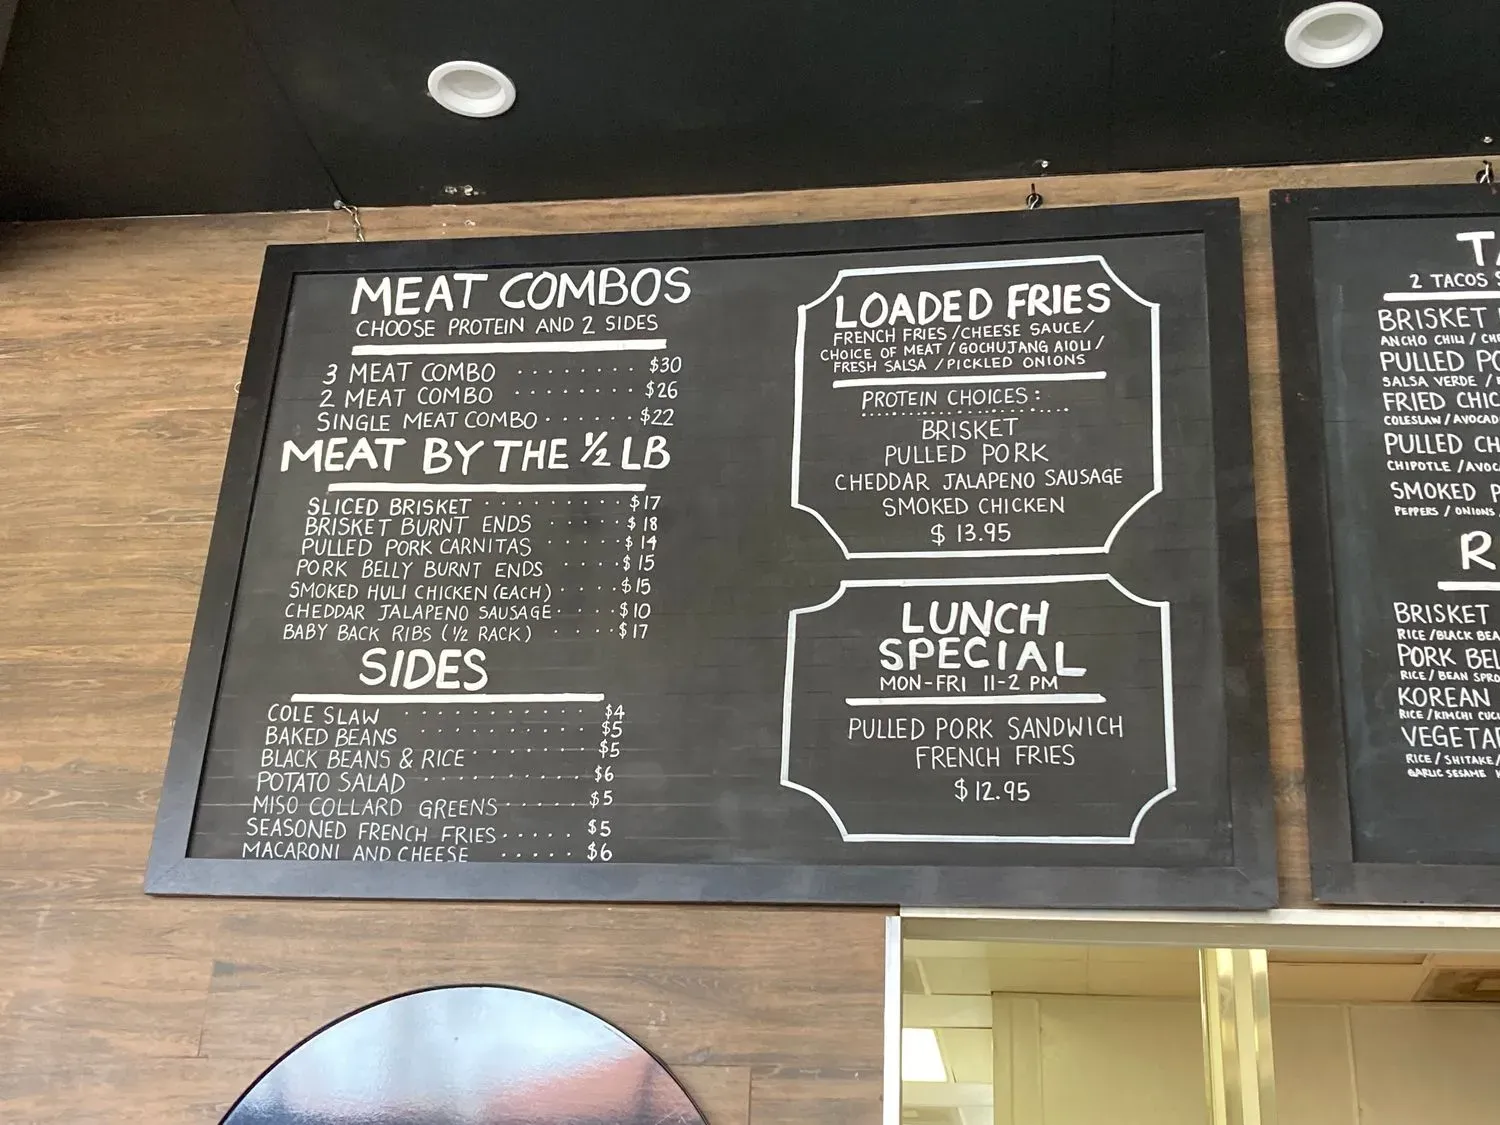 MEAT COMBOS
CHOOSE PROTEIN AND 2 SIDES
3 MEAT COMBO ........ $30
2 MEAT COMBO ........ $26
SINGLE MEAT COMBO ....... $22
MEAT BY THE 1/2 LB
SLICED BRISKET ......... $17
BRISKET BURNT ENDS ..... $18
PULLED PORK CARNITAS ..... $14
PORK BELLY BURNT ENDS .... $15
SMOKED HULI CHICKEN (EACH) .... $15
CHEDDAR JALAPENO SAUSAGE .... $10
BABY BACK RIBS (1/2 RACK) .... $17
SIDES
COLE SLAW .......... $4
BAKED BEANS .......... $5
BLACK BEANS & RICE ....... $5
POTATO SALAD .......... $6
MISO COLLARD GREENS ..... $5
SEASONED FRENCH FRIES ..... $5
MACARONI AND CHEESE ..... $6
LOADED FRIES
FRENCH FRIES / CHEESE SAUCE /
CHOICE OF MEAT / GOCHUJANG AIOLI /
FRESH SALSA / PICKLED ONIONS
PROTEIN CHOICES:
BRISKET
PULLED PORK
CHEDDAR JALAPENO SAUSAGE
SMOKED CHICKEN
$ 13.95
LUNCH
SPECIAL
MON-FRI 11-2 PM
PULLED PORK SANDWICH
FRENCH FRIES
$12.95
2 TACOS
BRISKET
ANCHO CHILI /
PULLED
SALSA VERDE /
FRIED
COLESLAW /
PULLED
CHIPOTLE /
SMOKED
PEPPERS / ONIONS
BRISKET
RICE / BLACK
PORK
RICE / BEAN
KOREAN
RICE / KIMCHI
RICE / SHITAKE /
GARLIC SESAME